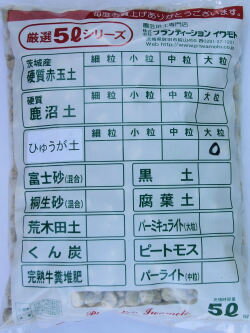 毎度お買上げありがとうございます。
厳選5ℓシリーズ
園芸用土専門店
プランテーション イワモト
茨城産
硬質赤玉土
細粒 小粒 中粒 大粒
硬質
鹿沼土
細粒 小粒 中粒 大粒
ひゅうが土
細粒 小粒 中粒 大粒
富士砂(混合) 黒土
桐生砂(混合) 腐葉土
荒木田土 バーミキュライト(大粒)
くん炭 ピートモス
完熟牛糞堆肥 パーライト(中粒)
5ℓ